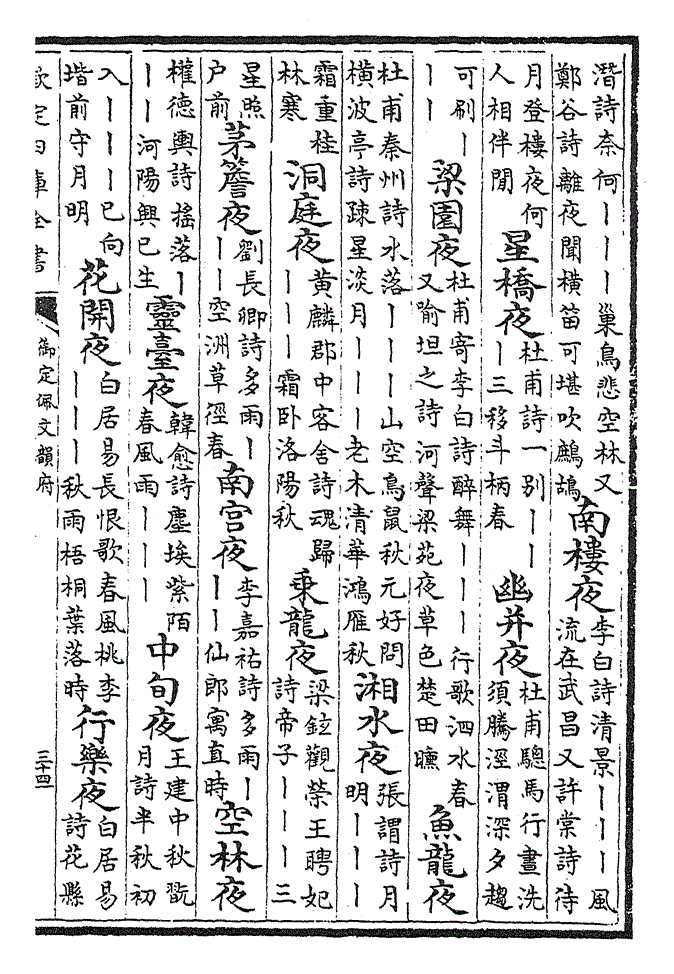 潛詩奈何丨丨丨巢鳥悲空林又
鄭谷詩離夜聞橫笛可堪吹鷓鴣
南樓夜
李白詩清景丨丨丨風
流在武昌又許棠詩待
月登樓夜何
人相伴閒
星橋夜
杜甫詩一别丨丨
丨三移斗柄春
幽并夜
杜甫驄馬行晝洗
須騰涇渭深夕趨
可刷丨
丨丨
梁園夜
杜甫寄李白詩醉舞丨丨丨行歌泗水春
又喻坦之詩河聲梁苑夜草色楚田曛
魚龍夜
杜甫秦州詩水落丨丨丨山空鳥鼠秋元好問
橫波亭詩疎星淡月丨丨丨老木清華鴻雁秋
湘水夜
張謂詩月
明丨丨丨
霜重桂
林寒
洞庭夜
黄麟郡中客舍詩魂歸
丨丨丨霜卧洛陽秋
乗龍夜
梁鉉觀榮王聘妃
詩帝子丨丨丨三
星照
户前
茅簷夜
劉長卿詩多雨丨
丨丨空洲草徑春
南宫夜
李嘉祐詩多雨丨
丨丨仙郎寓直時
空林夜
權德輿詩摇落丨
丨丨河陽興已生
靈臺夜
韓愈詩塵埃紫陌
春風雨丨丨丨
中旬夜
王建中秋翫
月詩半秋初
入丨丨丨已向
堦前守月明
花開夜
白居易長恨歌春風桃李
丨丨丨秋雨梧桐葉落時
行樂夜
白居易
詩花縣
欽定四庫全書
御定佩文韻府
三十四